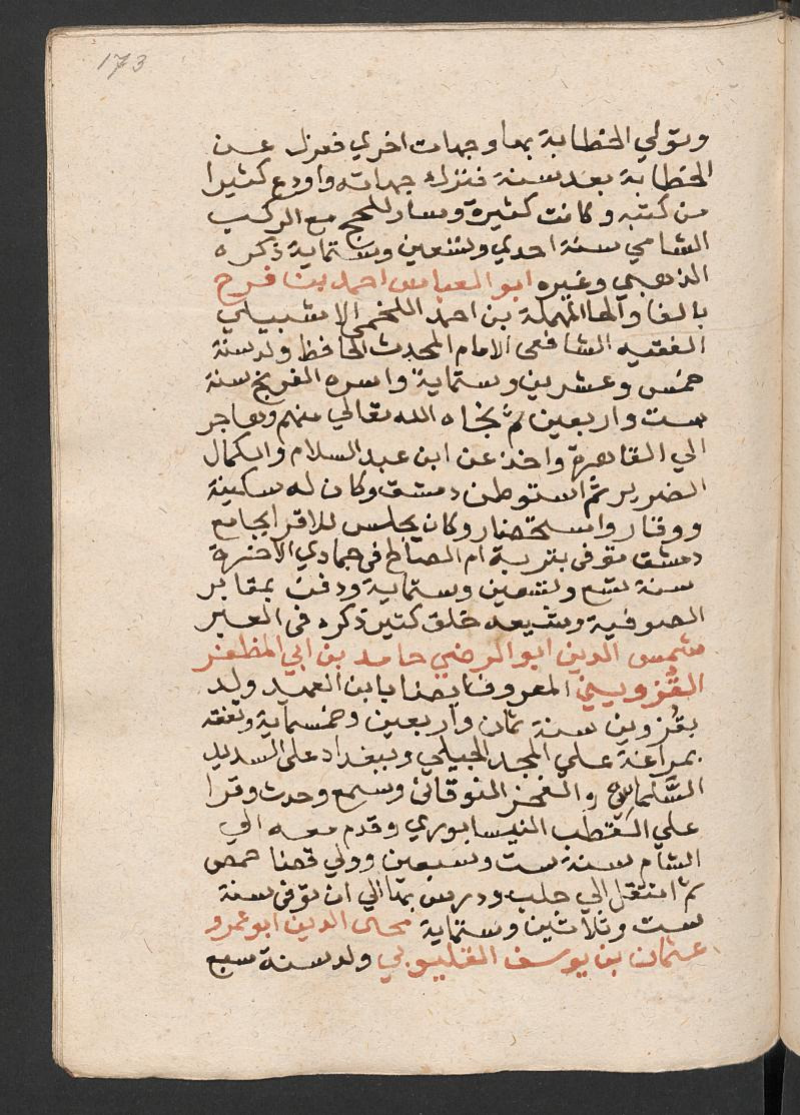 173
وتولي الخطابة بها وجهات اخري فعزل عن
الخطابة بعد سنة فنزل جهاته واودع كثيرا
من كتبه وكانت كثيرة وسار للحج مع الركب
الشامي سنة احدي وتسعين وستماية ذكره
الذهبي وغيره ابو العباس احمد بن فرح
بالفا والحا المهملة بن احمد اللخمي الاشبيلي
الفقيه الشافعي الامام المحدث الحافظ ولد سنة
خمس وعشرين وستماية واسره الفرنج سنة
ست واربعين ثم نجاه الله تعالي منهم وهاجر
الي القاهرة واخذ عن ابن عبد السلام والكمال
الضرير ثم استوطن دمشق وكان له سكينة
ووقار واستحضار وكان يجلس للاقرا بجامع
دمشق توفي بتربة ام الصالح في جمادي الاخرة
سنة تسع وتسعين وستماية ودفن بمقابر
الصوفية وشيعه خلق كثير ذكره في العبر
شمس الدين ابو الرضي حامد بن ابي المظفر
القزويني المعروف ايضا بابن العميد ولد
بقزوين سنة ثمان واربعين وخمسماية وتفقه
بمراغة علي المجد الجيلي وببغداد علي السديد
السلماسي والفخر النوقاني وسمع وحدث وقرا
علي القطب النيسابوري وقدم معه الي
الشام سنة ست وسبعين وولي قضا حمص
ثم انتقل الي حلب ودرس بها الي ان توفي سنة
ست وثلاثين وستماية محيى الدين ابو عمرو
عثمان بن يوسف القليوبي ولد سنة سبع